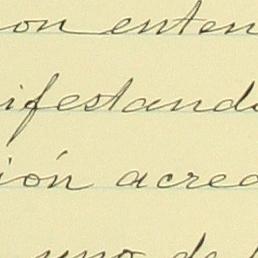 on enten
ifestando
ión acred
uno de l